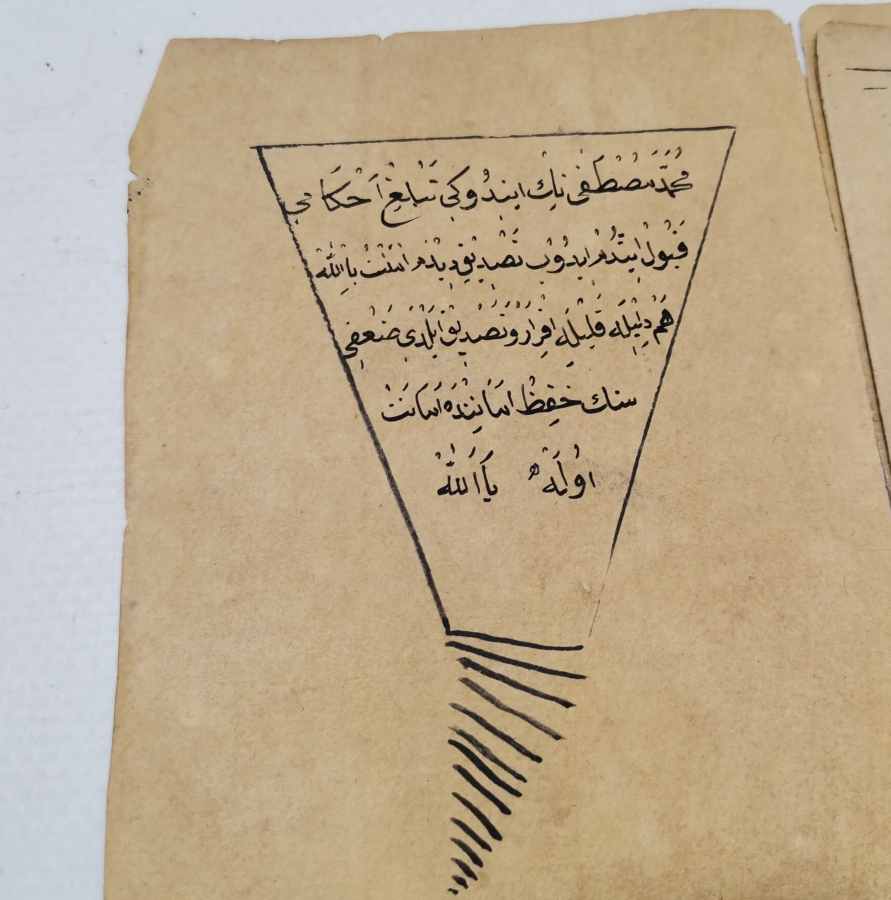 مُحَمَّدْ مُصْطَفٰى نِڭْ ايندُوكِي تَبْلِيغِ اَحْكَامِي
قَبُولْ اِيتْدُمْ ايدُوبْ تَصْدِيقْ دِيدُمْ امَنْتُ بِاللّٰهْ
هَمْ دِلِيلَه قَلْبِيلَه اِقْرَارْ وُ تَصْدِيقْ اَيْلَدِي ضَعْفِي
سنڭ حِفِظْ اَمَانِنْدَه اَمَانَتْ
اوُلَه يَا اَللّٰهْ